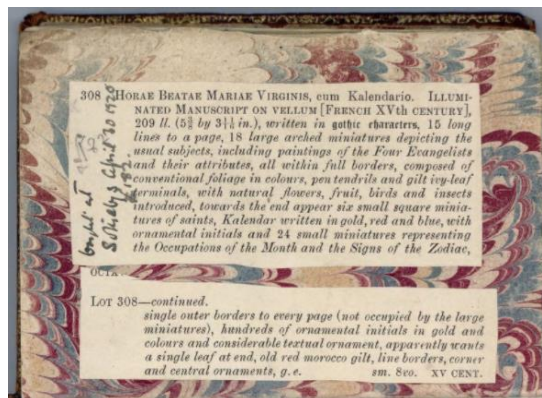 308 HORAE BEATAE MARIAE VIRGINIS, cum Kalendario. ILLUMI-
NATED MANUSCRIPT ON VELLUM [FRENCH XVTH CENTURY],
209 ll. (5⅜ by 3 11/16 in.), written in gothic characters, 15 long
lines to a page, 18 large arched miniatures depicting the
usual subjects, including paintings of the Four Evangelists
and their attributes, all within full borders, composed of
conventional foliage in colours, pen tendrils and gilt ivy-leaf
terminals, with natural flowers, fruit, birds and insects
introduced, towards the end appear six small square minia-
tures of saints, Kalendar written in gold, red and blue, with
ornamental initials and 24 small miniatures representing
the Occupations of the Month and the Signs of the Zodiac,
bought at
Sotheby's April 30 1920
OCTA
LOT 308—continued.
single outer borders to every page (not occupied by the large
miniatures), hundreds of ornamental initials in gold and
colours and considerable textual ornament, apparently wants
a single leaf at end, old red morocco gilt, line borders, corner
and central ornaments, g.e. sm. 8vo. XV CENT.